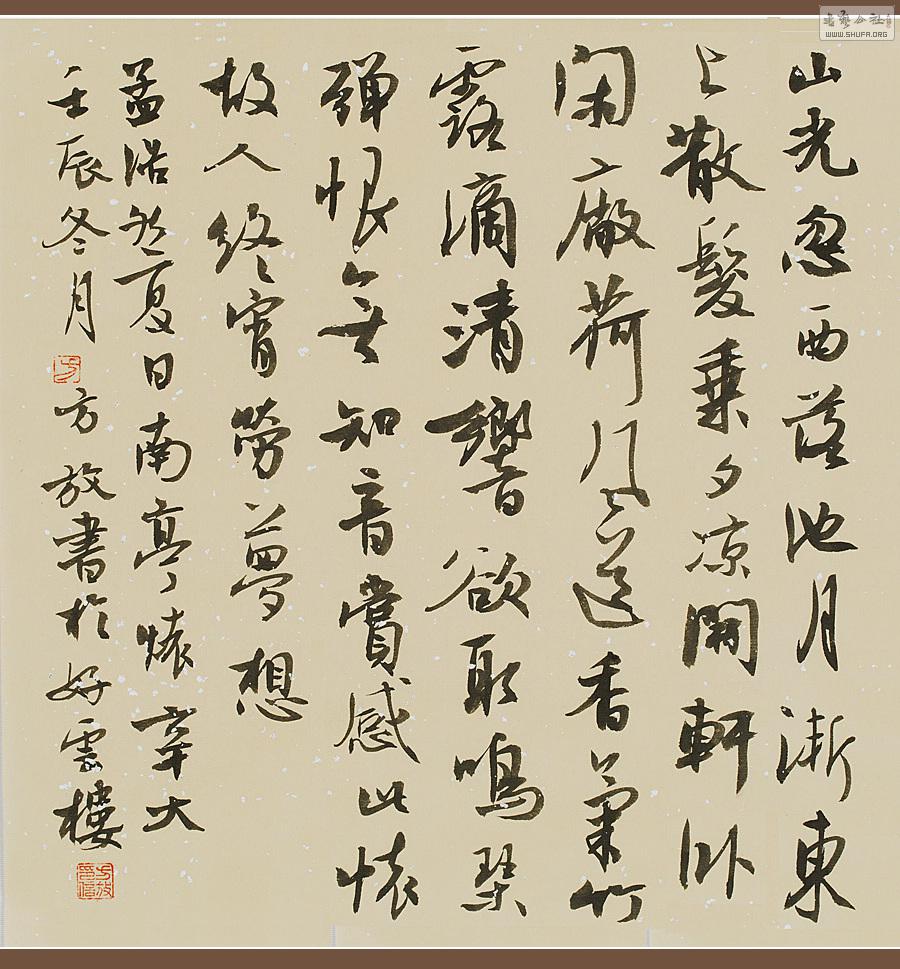 山光忽西落池月漸東
上散髮乘夕凉開軒卧
閑廠荷風送香氣竹
露滴清響欲取鳴琴
彈恨無知音賞感此懷
故人終宵勞夢想
孟浩然夏日南亭懷辛大
壬辰冬月方放書於好雲樓
方放印信
WWW.SHUFA.ORG